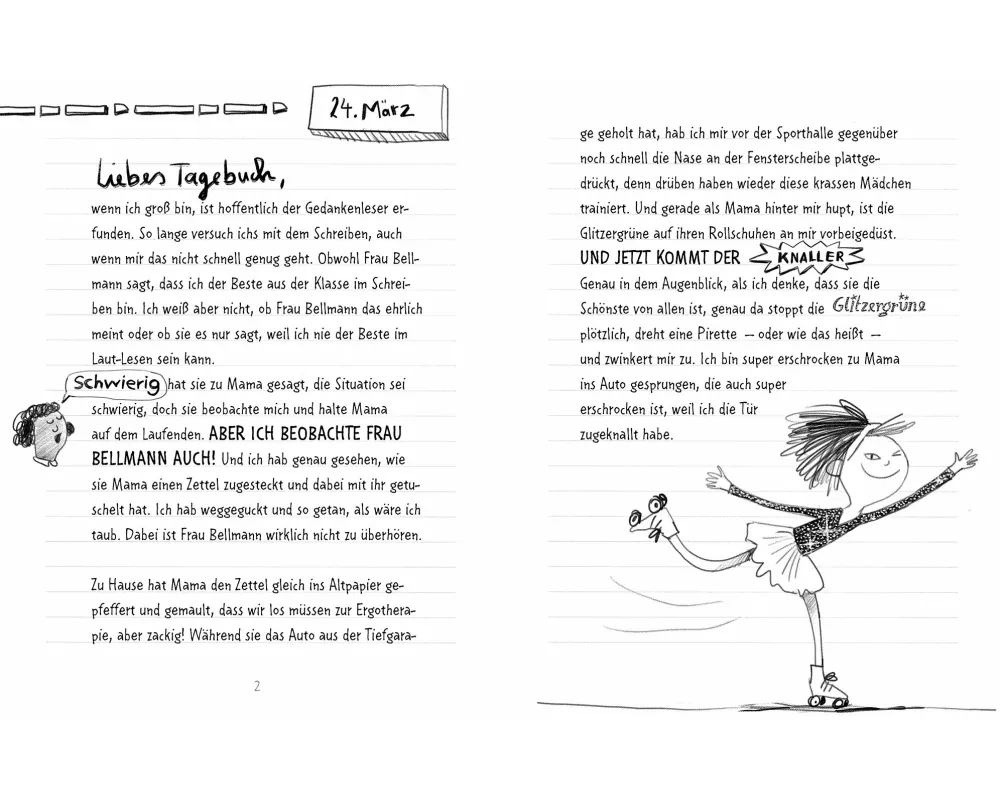 24. März
Liebes Tagebuch,
wenn ich groß bin, ist hoffentlich der Gedankenleser er-
funden. So lange versuch ichs mit dem Schreiben, auch
wenn mir das nicht schnell genug geht. Obwohl Frau Bell-
mann sagt, dass ich der Beste aus der Klasse im Schrei-
ben bin. Ich weiß aber nicht, ob Frau Bellmann das ehrlich
meint oder ob sie es nur sagt, weil ich nie der Beste im
Laut-Lesen sein kann.
Schwierig hat sie zu Mama gesagt, die Situation sei
schwierig, doch sie beobachte mich und halte Mama
auf dem Laufenden. ABER ICH BEOBACHTE FRAU
BELLMANN AUCH! Und ich hab genau gesehen, wie
sie Mama einen Zettel zugesteckt und dabei mit ihr getu-
schelt hat. Ich hab weggeguckt und so getan, als wäre ich
taub. Dabei ist Frau Bellmann wirklich nicht zu überhören.
Zu Hause hat Mama den Zettel gleich ins Altpapier ge-
pfeffert und gemault, dass wir los müssen zur Ergothera-
pie, aber zackig! Während sie das Auto aus der Tiefgara-
2
ge geholt hat, hab ich mir vor der Sporthalle gegenüber
noch schnell die Nase an der Fensterscheibe plattge-
drückt, denn drüben haben wieder diese krassen Mädchen
trainiert. Und gerade als Mama hinter mir hupt, ist die
Glitzergrüne auf ihren Rollschuhen an mir vorbeigedüst.
UND JETZT KOMMT DER KNALLER
Genau in dem Augenblick, als ich denke, dass sie die
Schönste von allen ist, genau da stoppt die Glitzergrüne
plötzlich, dreht eine Pirette – oder wie das heißt –
und zwinkert mir zu. Ich bin super erschrocken zu Mama
ins Auto gesprungen, die auch super
erschrocken ist, weil ich die Tür
zugeknallt habe.